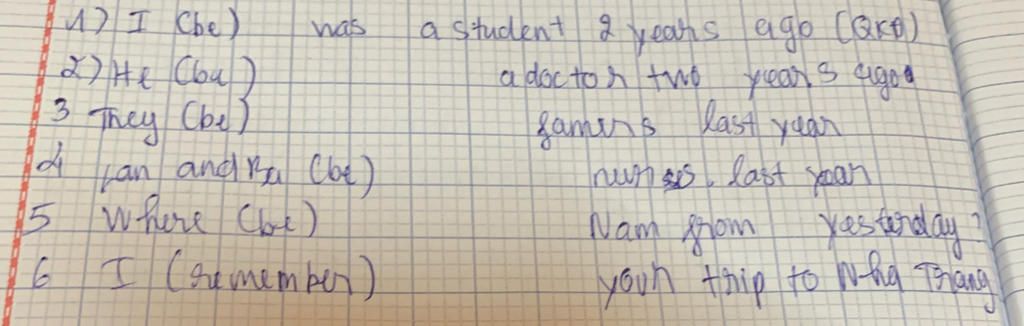 1) I (be) was a student 2 years ago (QKĐ)
2) He (be) a doctor two years ago
3 They (be) famers last year
4 Lan and Ba (be) nurses. last year
5 Where (be) Nam from yesterday?
6 I (remember) your trip to Nha Trang